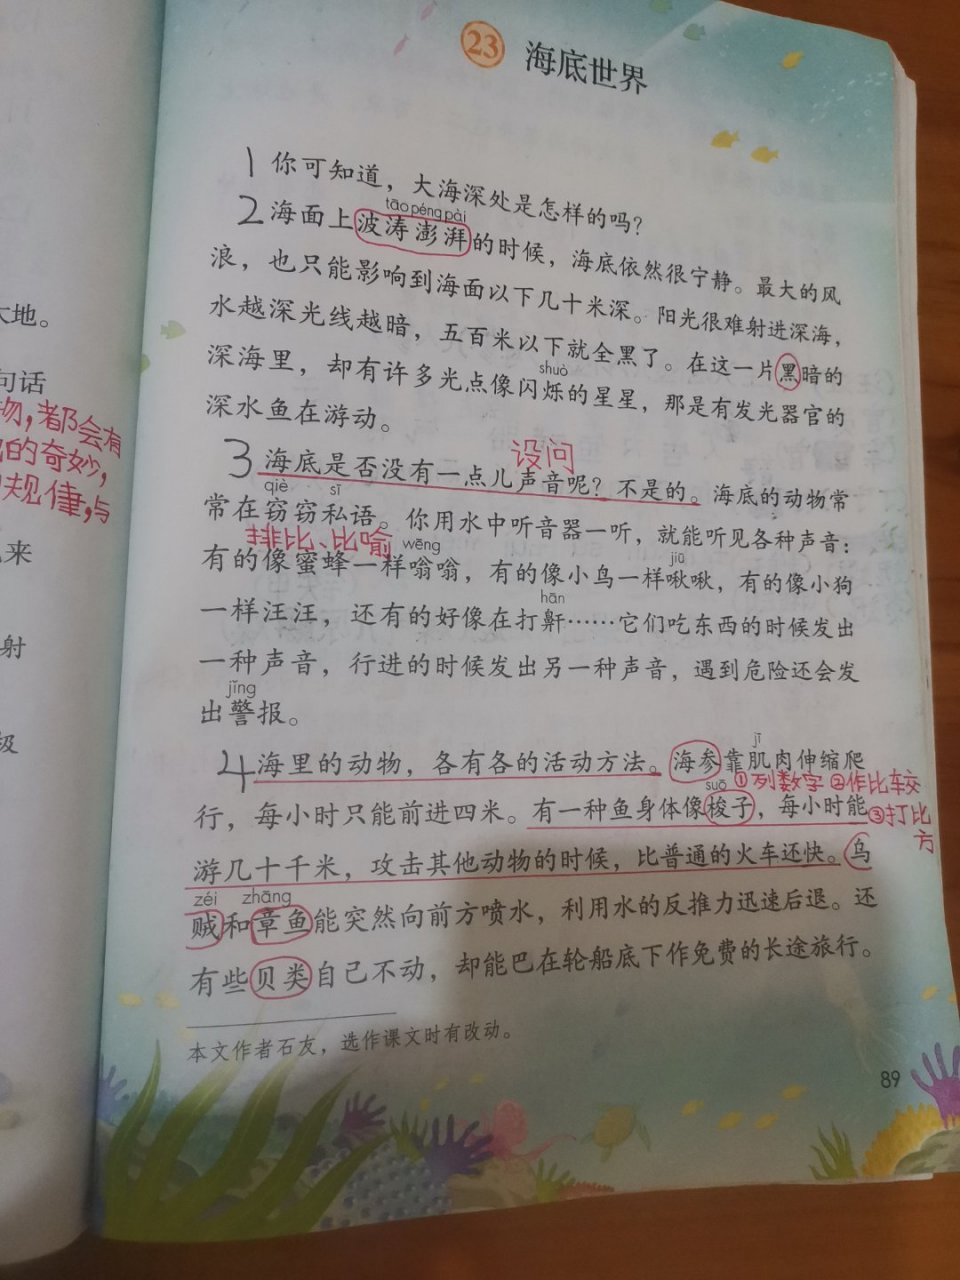 大地。
句话
物，都会有
的奇妙，
规律，与
来
射
极
23 海底世界
1 你可知道，大海深处是怎样的吗？
tāo péng pài
2 海面上波涛澎湃的时候，海底依然很宁静。最大的风
浪，也只能影响到海面以下几十米深。阳光很难射进深海，
水越深光线越暗，五百米以下就全黑了。在这一片黑暗的
shuò
深海里，却有许多光点像闪烁的星星，那是有发光器官的
深水鱼在游动。
设问
3 海底是否没有一点儿声音呢？不是的。海底的动物常
qiè sī
常在窃窃私语。你用水中听音器一听，就能听见各种声音：
排比、比喻 wēng jiū
有的像蜜蜂一样嗡嗡，有的像小鸟一样啾啾，有的像小狗
hān
一样汪汪，还有的好像在打鼾……它们吃东西的时候发出
一种声音，行进的时候发出另一种声音，遇到危险还会发
jǐng
出警报。
jī
4 海里的动物，各有各的活动方法。海参靠肌肉伸缩爬
suō ①列数字 ②作比较
行，每小时只能前进四米。有一种鱼身体像梭子，每小时能
③打比
方
游几十千米，攻击其他动物的时候，比普通的火车还快。乌
zéi zhāng
贼和章鱼能突然向前方喷水，利用水的反推力迅速后退。还
有些贝类自己不动，却能巴在轮船底下作免费的长途旅行。
本文作者石友，选作课文时有改动。
89